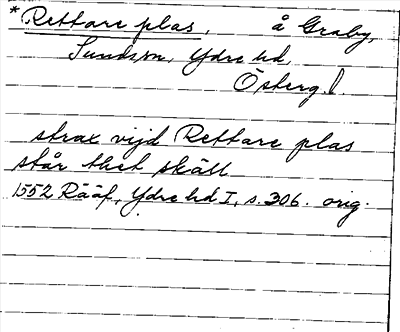 *Rettare plas, å Graby,
Sunds sn, Ydre hd,
Österg. l.
strax vijd Rettare plas
står thet skäll
1552 Rääf, Ydre hd I, s. 306. orig.